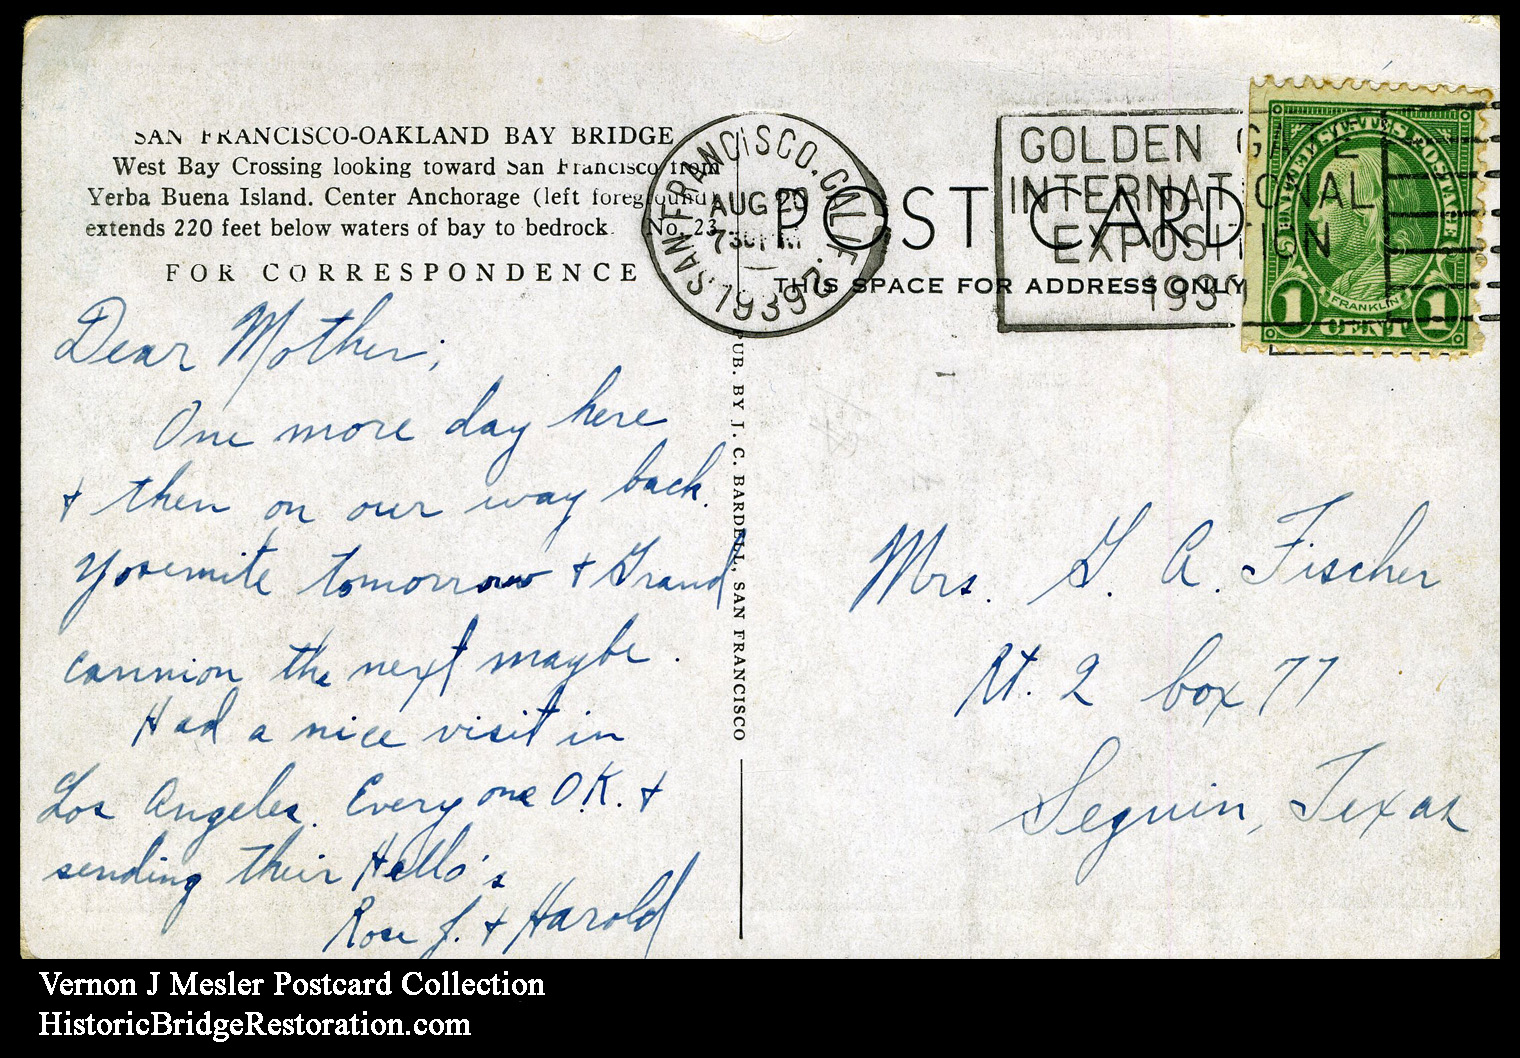 SAN FRANCISCO-OAKLAND BAY BRIDGE
West Bay Crossing looking toward San Francisco from
Yerba Buena Island. Center Anchorage (left foreground)
extends 220 feet below waters of bay to bedrock. No. 23
FOR CORRESPONDENCE
Dear Mother;
One more day here
+ then on our way back.
Yosemite tomorrow + Grand
cannion the next maybe.
Had a nice visit in
Los Angeles. Everyone O.K. +
sending their Hello's
Rose J. + Harold
PUB. BY J. C. BARDELL, SAN FRANCISCO
SAN FRANCISCO, CALIF.
AUG 20
7 30 PM
1939
POST CARD
THIS SPACE FOR ADDRESS ONLY
GOLDEN GATE
INTERNATIONAL
EXPOSITION
1939
UNITED STATES POSTAGE
FRANKLIN
1 CENT 1
Mrs. G. A. Fischer
Rt. 2 box 77
Seguin, Texas
Vernon J Mesler Postcard Collection
HistoricBridgeRestoration.com